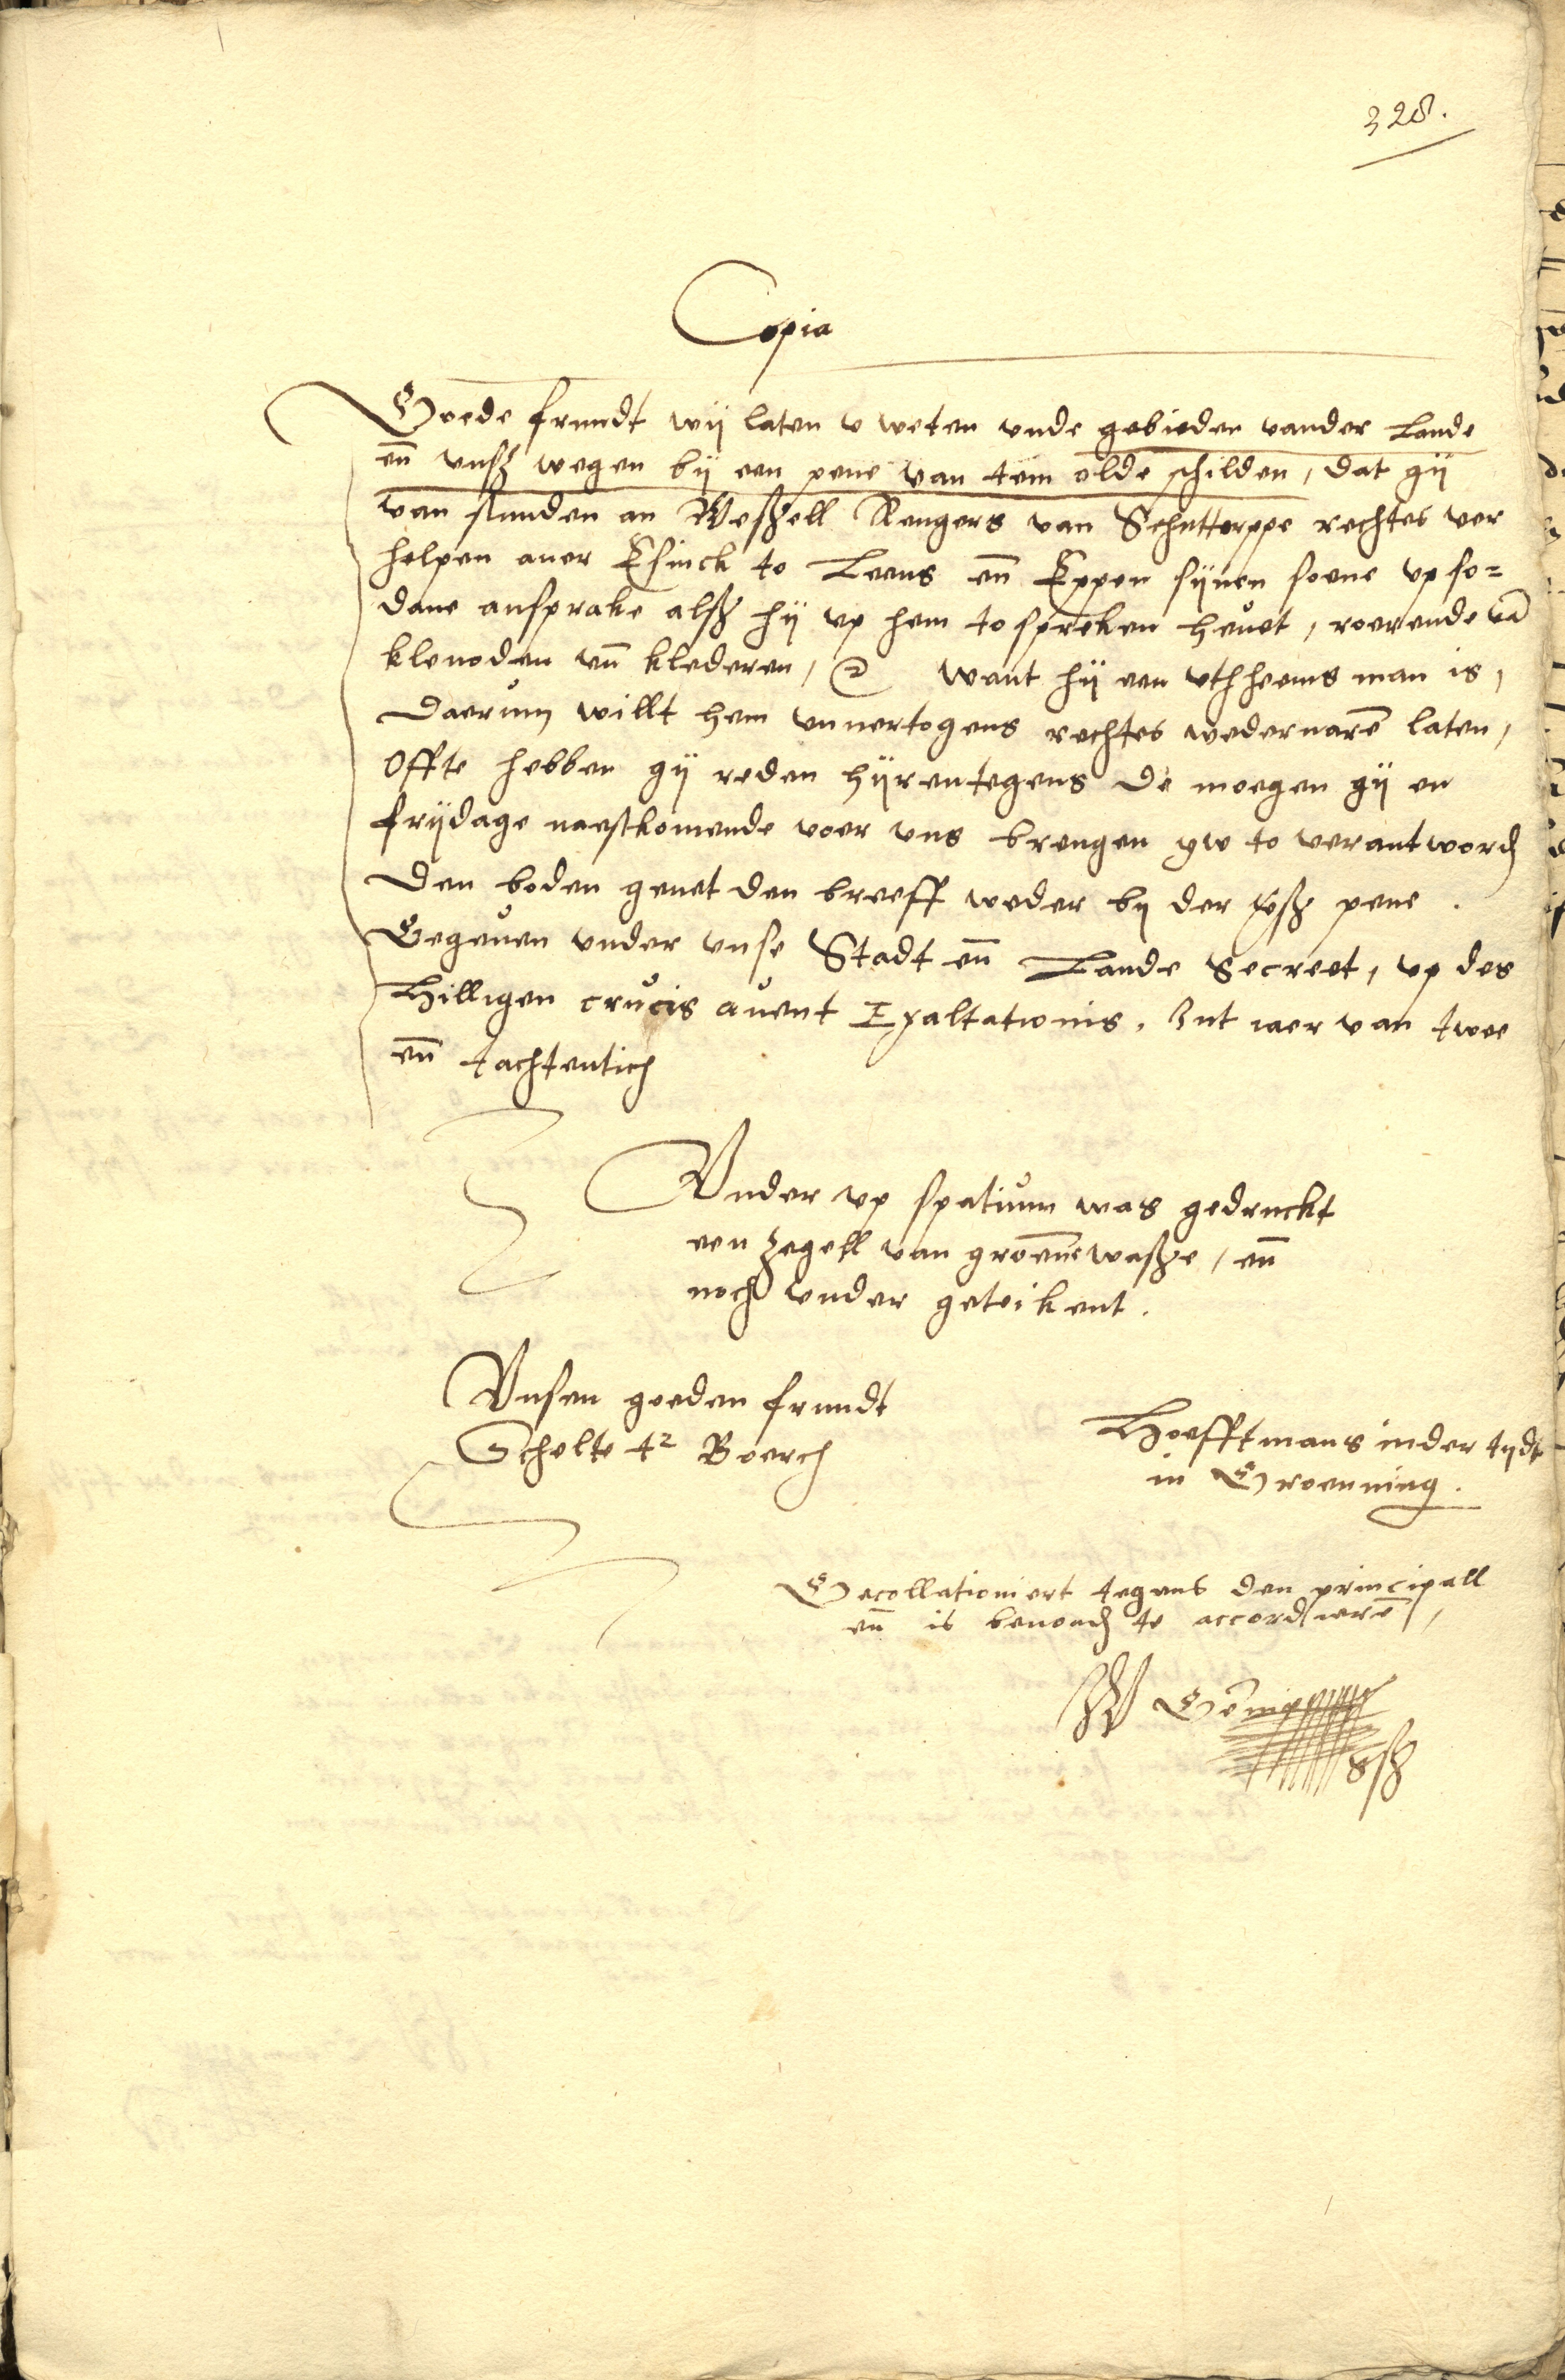 328.
Copia
Goede frundt wij laten v weten vnde gebieden vander Lande
en̄ vnsz wegen bij een pene van tein olde schilden, dat gij
van stunden an Weszell Rengers van Schuttorppe rechtes ver
helpen auer Eſinck to Leens en̄ Eppen sijnen soene vp so=
dane ansprake alsz hij vp hem to spreken heuet, roerende vā
klenoden vn̄ klederen, want hij een vthheems man is,
Daerum willt hem vnuertogens rechtes wedernarē laten,
Offte hebben gij reden hijrentegens de moegen gij en
frijdage naestkomende voer vns brengen yw to verantword
Den boden geuet den breeff weder bij der pene.
Gegeuen vnder vnse Stadt en̄ Lande Secreet, vp des
Hilligen crucis auent Exaltationis. Int iaer van twee
en̄ tachtentich
Vnder vp spatium was gedruckt
een zegell van groenne wasze, en̄
noch vnder geteikent.
Vnsen goeden frundt
Scholte tz Boerch
Hoefftmans inder tijdt
in Groenning.
Gecollationiert tegens den principall
en̄ is beuond te accordierē,
W